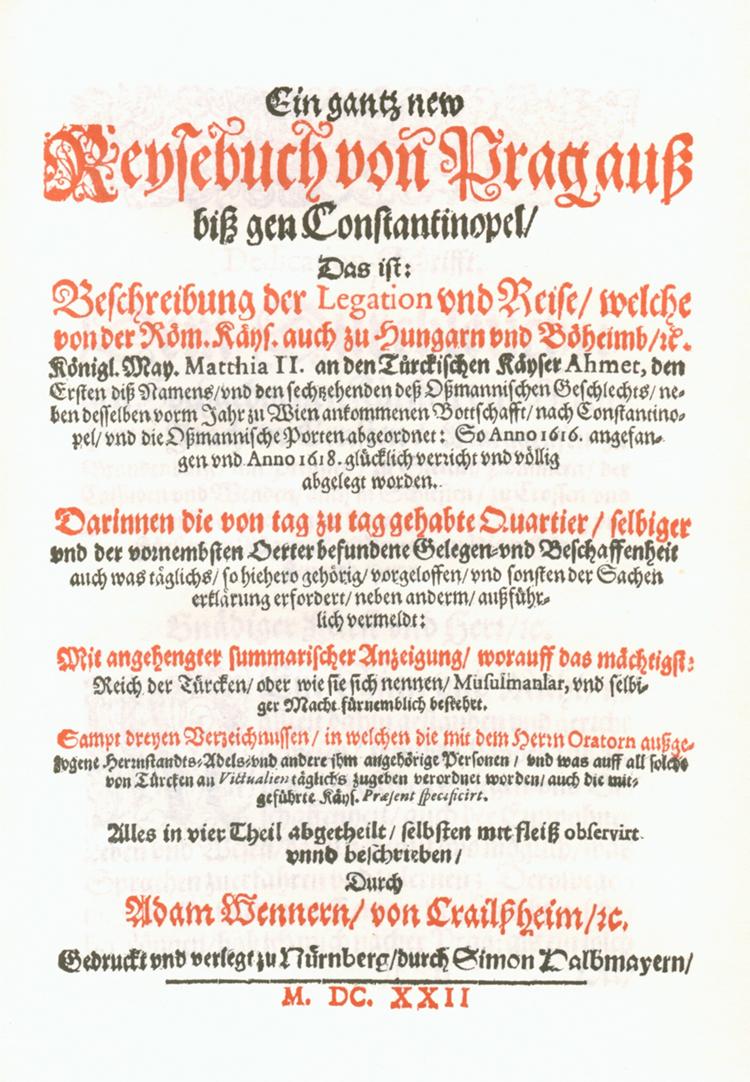 Ein gantz new
Reysebuch von Prag auß
biß gen Constantinopel/
Das ist:
Beschreibung der Legation vnd Reise/ welche
von der Röm. Käys. auch zu Hungarn vnd Böheimb/ꝛc.
Königl. May. Matthia II. an den Türckischen Käyser Ahmet, den
Ersten diß Namens/vnd den sechtzehenden deß Oßmannischen Geschlechts/ ne-
ben desselben vorm Jahr zu Wien ankommenen Bottschafft/ nach Constantino-
pel/ vnd die Oßmannische Porten abgeordnet: So Anno 1616. angefan-
gen vnd Anno 1618. glücklich verricht vnd völlig
abgelegt worden.
Darinnen die von tag zu tag gehabte Quartier / selbiger
vnd der vornembsten Oerter befundene Gelegen-vnd Beschaffenheit
auch was täglichs/ so hiehero gehörig/ vorgeloffen/ vnd sonsten der Sachen
erklärung erfordert/ neben anderm/ außführ-
lich vermeldt:
Mit angehengter summarischer Anzeigung/ worauff das mächtigst:
Reich der Türcken/ oder wie sie sich nennen/ Musulmanlar, vnd selbi-
ger Macht fürnemblich bestehet.
Sampt dreyen Verzeichnussen/ in welchen die mit dem Herrn Oratorn außge-
zogene Herrnstandts-Adels-vnd andere jhm angehörige Personen / vnd was auff all solche
von Türcken an Victualien täglichs zugeben verordnet worden/ auch die mit-
geführte Käys. Præsent specificirt.
Alles in vier Theil abgetheilt/ selbsten mit fleiß observirt
vnnd beschrieben/
Durch
Adam Wennern/ von Crailßheim/ꝛc.
Gedruckt vnd verlegt zu Nürnberg/durch Simon Halbmayern/
M. DC. XXII